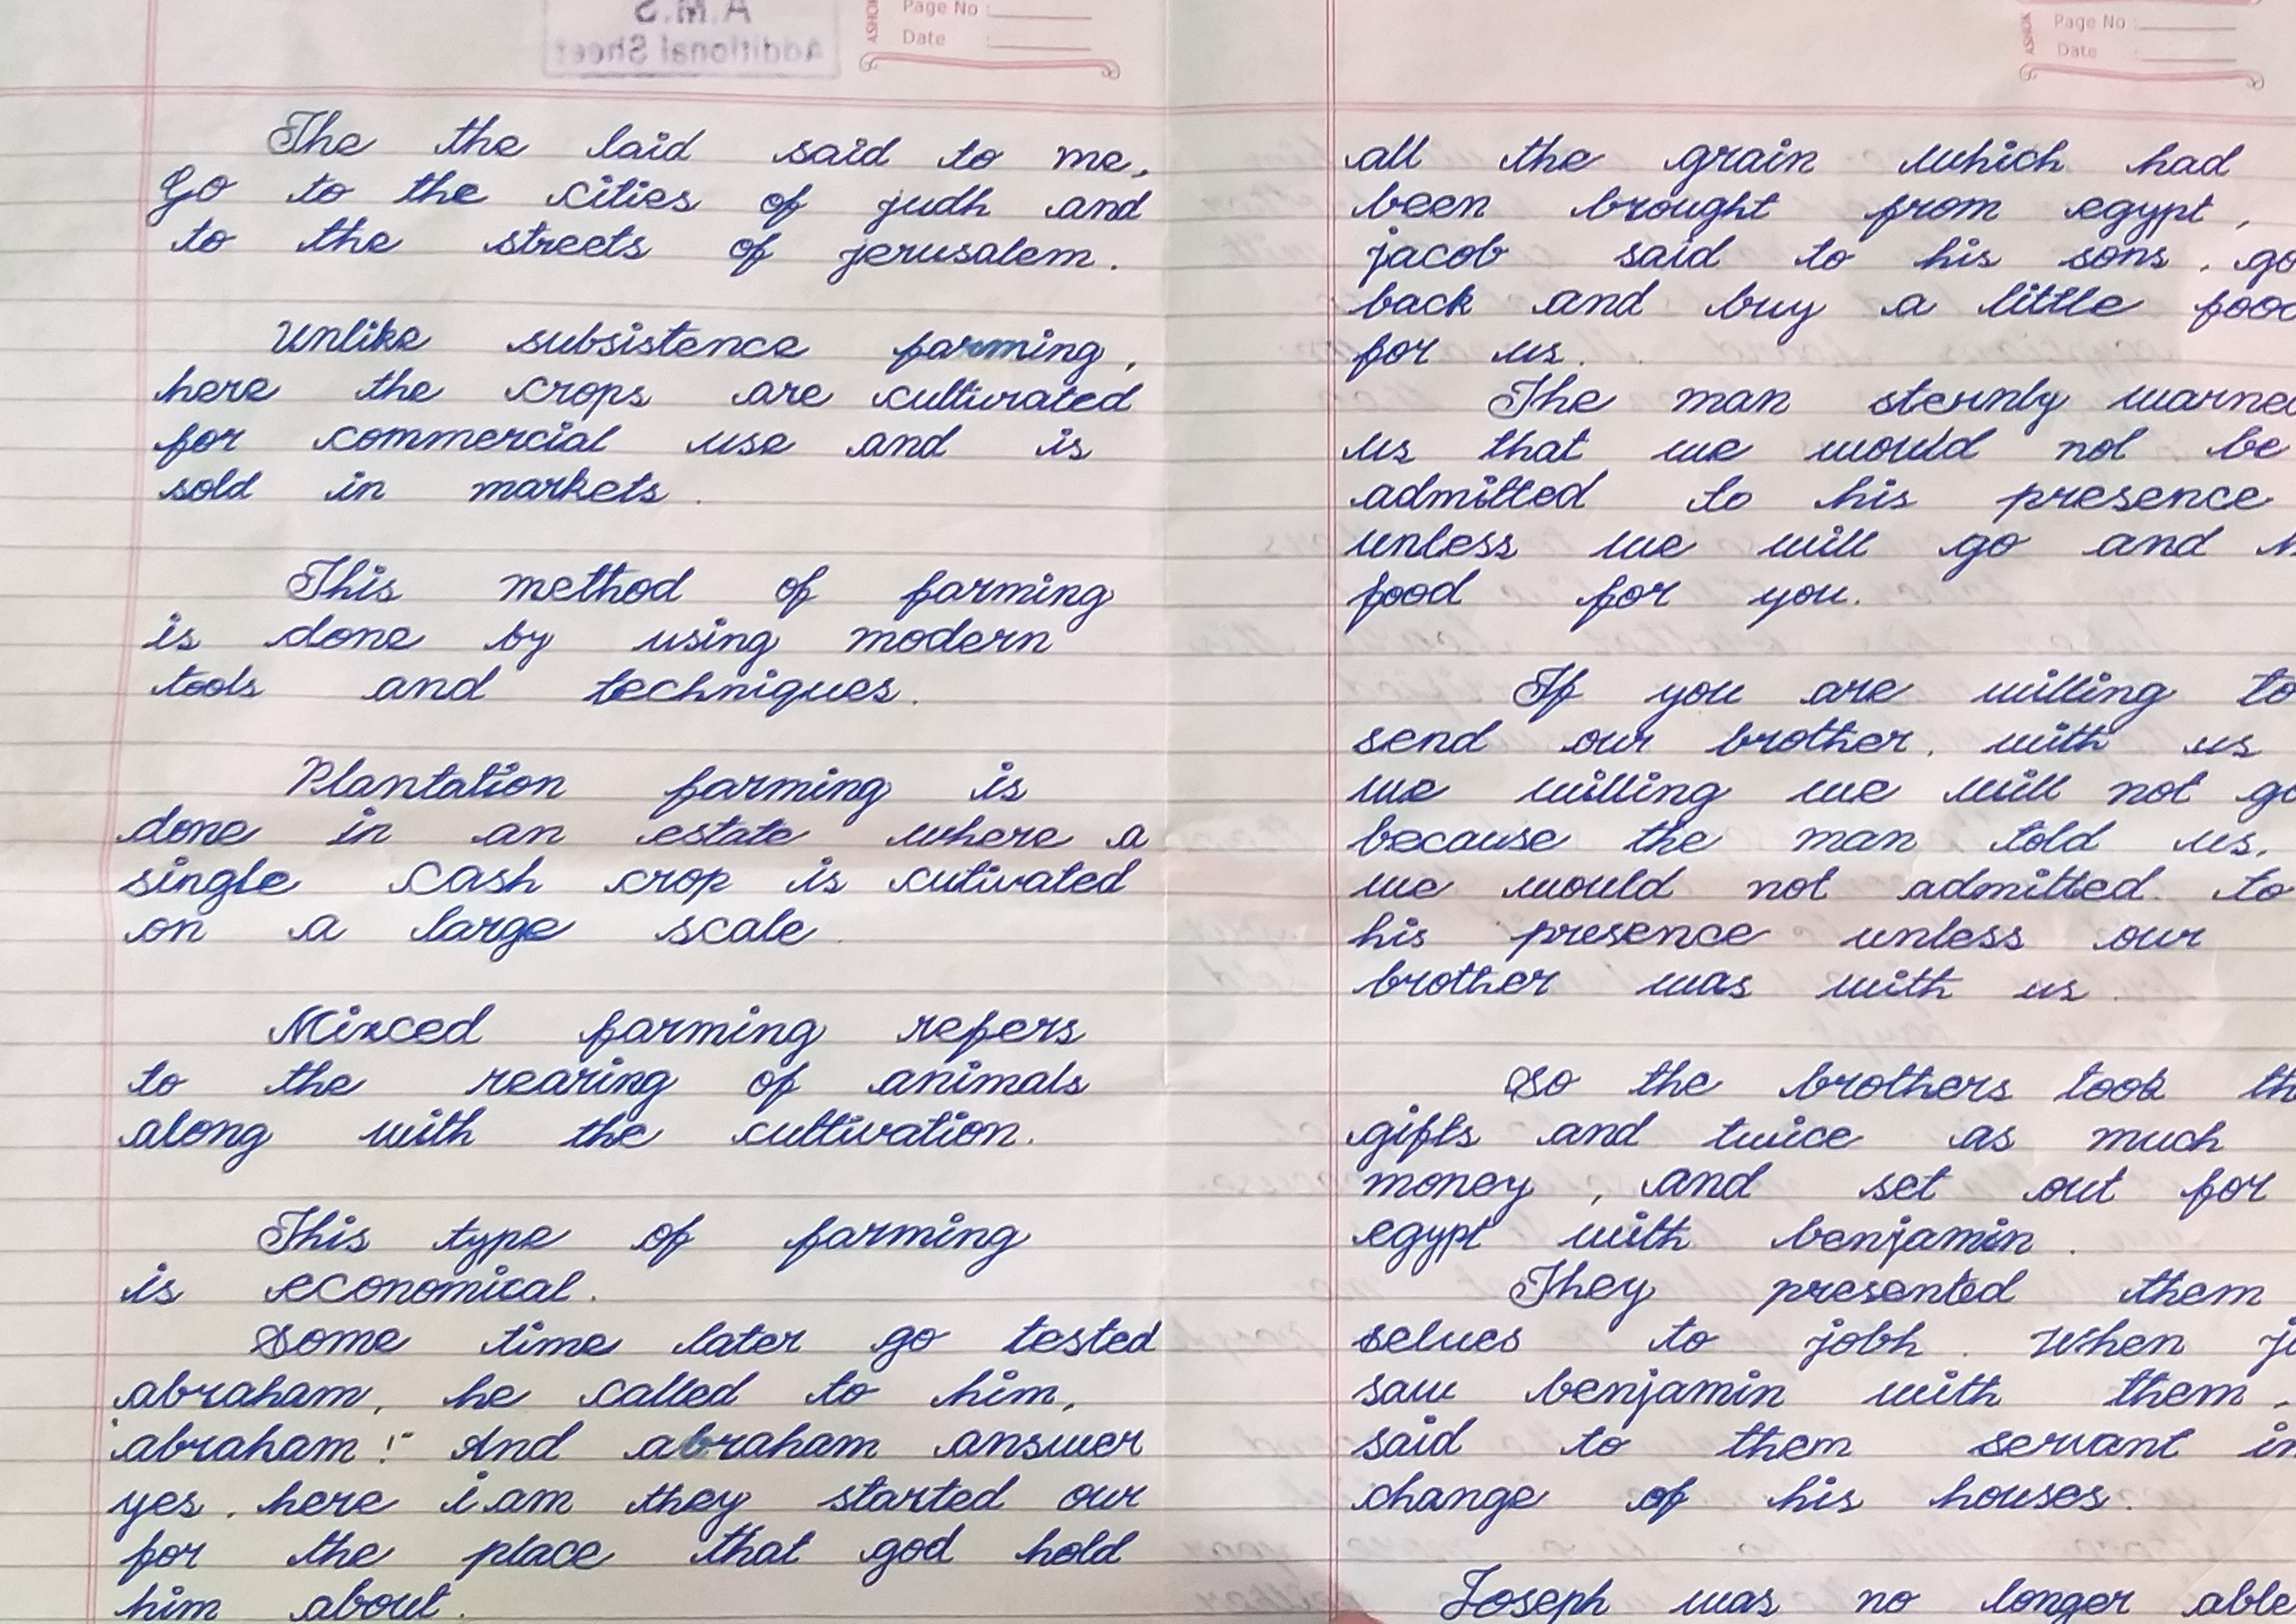 A.M.S
Additional Sheet
ASHOK
Page No :
Date :
The the laid said to me,
Go to the cities of judh and
to the streets of jerusalem.
Unlike subsistence farming,
here the crops are culturated
for commercial use and is
sold in markets.
This method of farming
is done by using modern
tools and techniques.
Plantation farming is
done in an estate where a
single cash crop is cutivated
on a large scale.
Mixced farming refers
to the rearing of animals
along with the cultivation.
This type of farming
is economical.
Some time later go tested
abraham, he called to him,
"abraham!" And abraham answer
yes. here i am they started our
for the place that god hold
him about.
ASHOK
Page No :
Date :
all the grain which had
been brought from egypt,
jacob said to his sons. go
back and buy a little food
for us.
The man sternly warned
us that we would not be
admitted to his presence
unless we will go and
food for you.
If you are willing to
send our brother. with us
we willing we will not go
because the man told us.
we would not admitted. to
his presence unless our
brother was with us.
So the brothers took
gifts and twice as much
money, and set out for
egypt with benjamin.
They presented them
selues to jobh. When
saw benjamin with them,
said to them servant in
change of his houses.
Joseph was no longer able